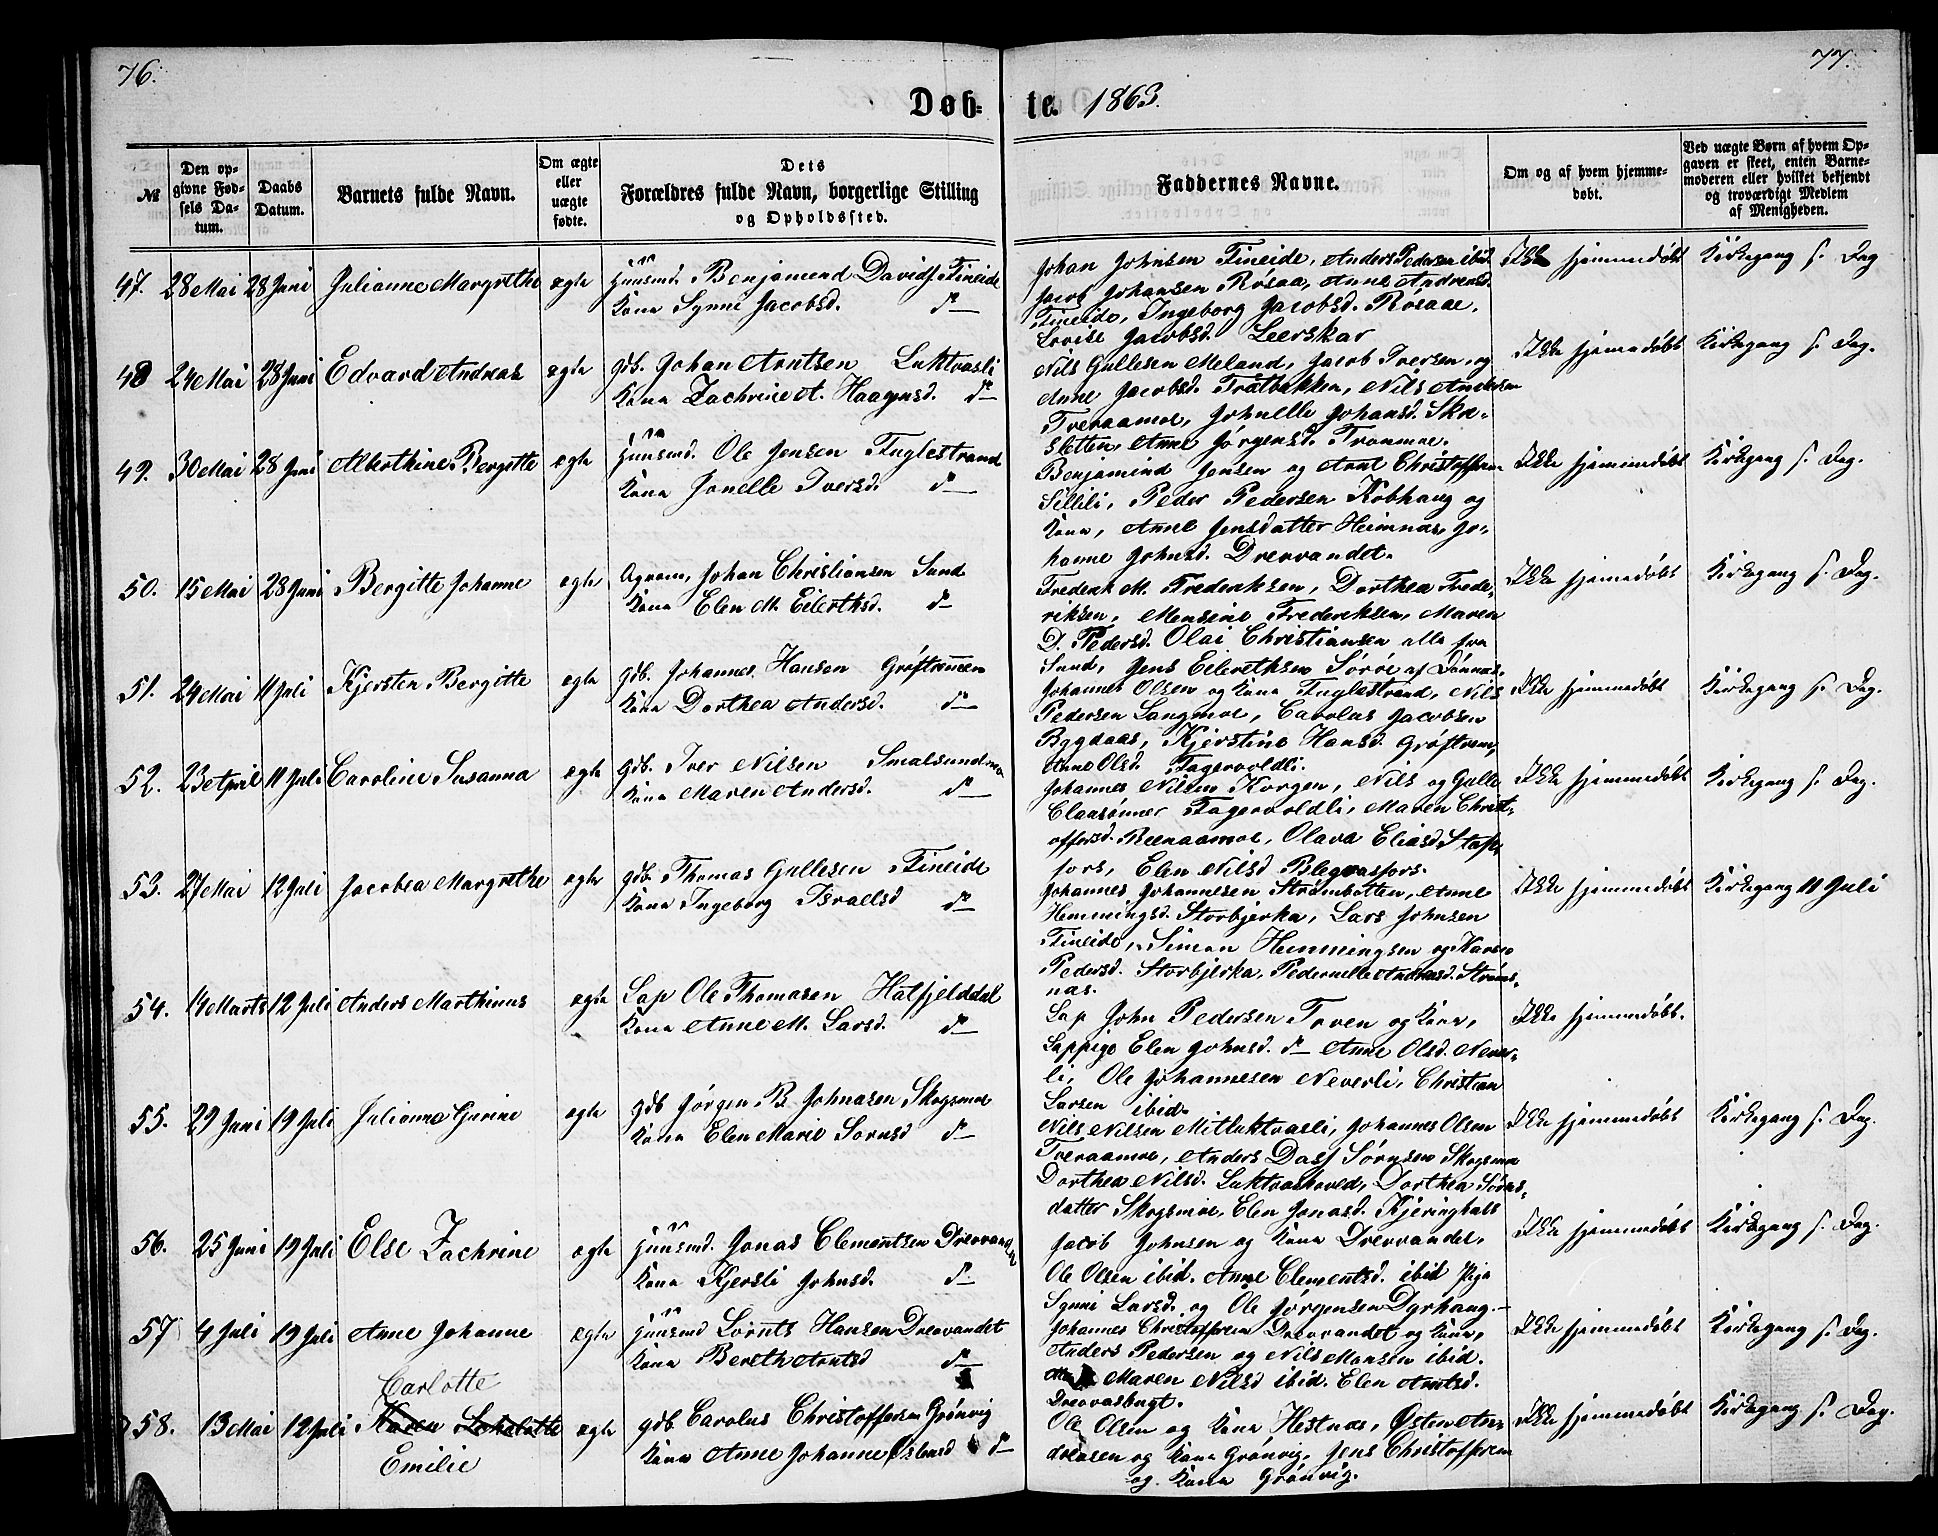 76.
77.
Døb- te. 1863.
№
Den op-
givne Fød-
sels Da-
tum.
Daabs
Datum.
Barnets fulde Navn.
Om ægte
eller
uægte
fødte.
Dets
Forældres fulde Navn, borgerlige Stilling
og Opholdssted.
Faddernes Navne.
Om og af hvem hjemme-
døbt.
Ved uægte Børn af hvem Op-
gaven er skeet, enten Barne-
moderen eller hvilket bekjendt
og troværdigt Medlem
af Menigheden.
47. 28 Mai 28 Juni Julianne Margrethe ægte
Huusmd. Benjamend Davids. Fineide
Kone Synne Jacobsd. do
Johan Johnsen Fineide, Anders Pedersen ibid.
Jacob Johansen Røsaa, Anne Andreasd.
Fineide, Ingeborg Jacobsd. Røsaae.
Lovise Jacobsd. Leerskar
Ikke hjemmedøbt Kirkegang s. Dag
48 24 Mai 28 Juni Edvard Andreas ægte
gdb. Johan Arntsen Luktvasli
Kone Zachrine A. Haagensd. do
Nils Gullesen Meland, Jacob Iversen, og
Anne Jacobsd. Tratbakken, Nils Andersen
Tveraamoe, Johnelle Johansd. Ska-
sletten, Anne Jørgensd. Tronmoe.
Ikke hjemmedøbt Kirkegang s. Dag.
49. 30 Mai 28 Juni Alberthine Bergitte ægte
Huusmd. Ole Jensen Fuglestrand
Kone Jonelle Iversd. do
Benjamind Jensen og Arnt Christoffersen
Sillili, Peder Pedersen Kobhaug og
Kone, Anne Jensdatter Heimnæs, Jo-
hanne Johnsd. Drevvandet.
Ikke hjemmedøbt Kirkegang s. Dag.
50. 15 Mai 28 Juni Bergitte Johanne ægte
Johan Christiansen Sund
Kone Elen M. Eilertsd. do
Frederik M. Frederiksen, Dorthea Frede-
riksen, Mensine Frederiksen, Maren
D. Pedersd. Olai Christiansen alle fra
Sund, Jens Eilerthsen Sørøe af Dønnæs.
Ikke hjemmedøbt Kirkegang s. Dag.
51. 24 Mai 11 Juli Kjersten Bergitte ægte
gdb. Johannes Hansen Grøftremen
Kone Dorthea Andersd. do
Johannes Olsen og Kone Fuglestrand, Nils
Pedersen Langmoe, Carolus Jacobsen
Bygdaas, Kjerstine Hansd. Grøftrem,
Anne Olsd. Fagervoldli.
Ikke hjemmedøbt Kirkegang s. Dag.
52. 23 April 11 Juli Caroline Susanna ægte
gdb. Iver Nilsen Smalsundmo
Kone Maren Andersd. do
Johannes Nilsen Korgen, Nils og Gulle
Claasønner Fagervoldli, Maren Christ-
offersd. Reenaamoe, Olava Eliasd.
fors, Elen Nilsd
Ikke hjemmedøbt Kirkegang s. Dag.
53. 27 Mai 12 Juli Jacobea Margrethe ægte
gdb. Thomas Gullesen Fineide
Kone Ingeborg Israelsd do
Johannes Johannesen Strømbotten, Anne
Hemmingsd. Storbjerka, Lars Johnsen
Fineide, Simon Hemmingsen og Karen
Pedersd. Storbjerka, Pedernelle Andreasd. Strøm-
næs.
Ikke hjemmedøbt Kirkegang 11 Juli
54. 14 Marts 12 Juli Anders Marthinus ægte
Lap Ole Thomasen Hatfjelddal
Kone Anne M. Larsd. do
Lap John Pedersen Toven og Kone,
Lappige Elen Johnsd. do Anne Olsd. Never-
li, Ole Johannesen Neverli, Christian
Larsen ibid.
Ikke hjemmedøbt.
55. 29 Juni 19 Juli Julianna Gurine ægte
gdb Jørgen B. Johnasen Skogsmoe
Kone Elen Marie Sørnsd do
Nils Nilsen Mitluktvasli, Johannes Olsen
Tveraamoe, Anders Dass Sørnsen Skogsmo
Dorthea Nilsd. Luktvashoved, Dorthea Sørns-
datter Skogsmoe, Elen Jonasd. Kjeringhals
Ikke hjemmedøbt Kirkegang s. Dag.
56. 25 Juni 19 Juli Else Zachrine ægte
Huusmd. Jonas Clementsen Drevvandet
Kone Kjersti Johnsd. do
Jacob Johnsen og Kone Drevvandet,
Ole Olsen ibid. Anne Clementsd. ibid Pige
Synni Larsd. og Ole Jørgensen Dyrhaug.
Ikke hjemmedøbt Kirkegang s. Dag.
57 4 Juli 19 Juli Anne Johanne ægte
Huusmd Lornts Hansen Drevvandet
Kone Bereth Arntsd do
Johannes Christoffersen Drevvandet og Kone,
Anders Pedersen og Nils Monsen ibid.
Maren Nilsd ibid. Elen Arntsd.
Drevvasbugt.
Ikke hjemmedøbt Kirkegang s. Dag.
Carlotte
58. 13 Mai 12 Juli Karen Emilie ægte
gdb. Carolus Christoffersen Grønvig
Kone Anne Johanne do
Ole Olsen og Kone Hestnæs, Østen An-
dreasen og Kone Grønvig, Jens Christoffersen
og Kone Grønvig.
Ikke hjemmedøbt Kirkegang s. Dag.